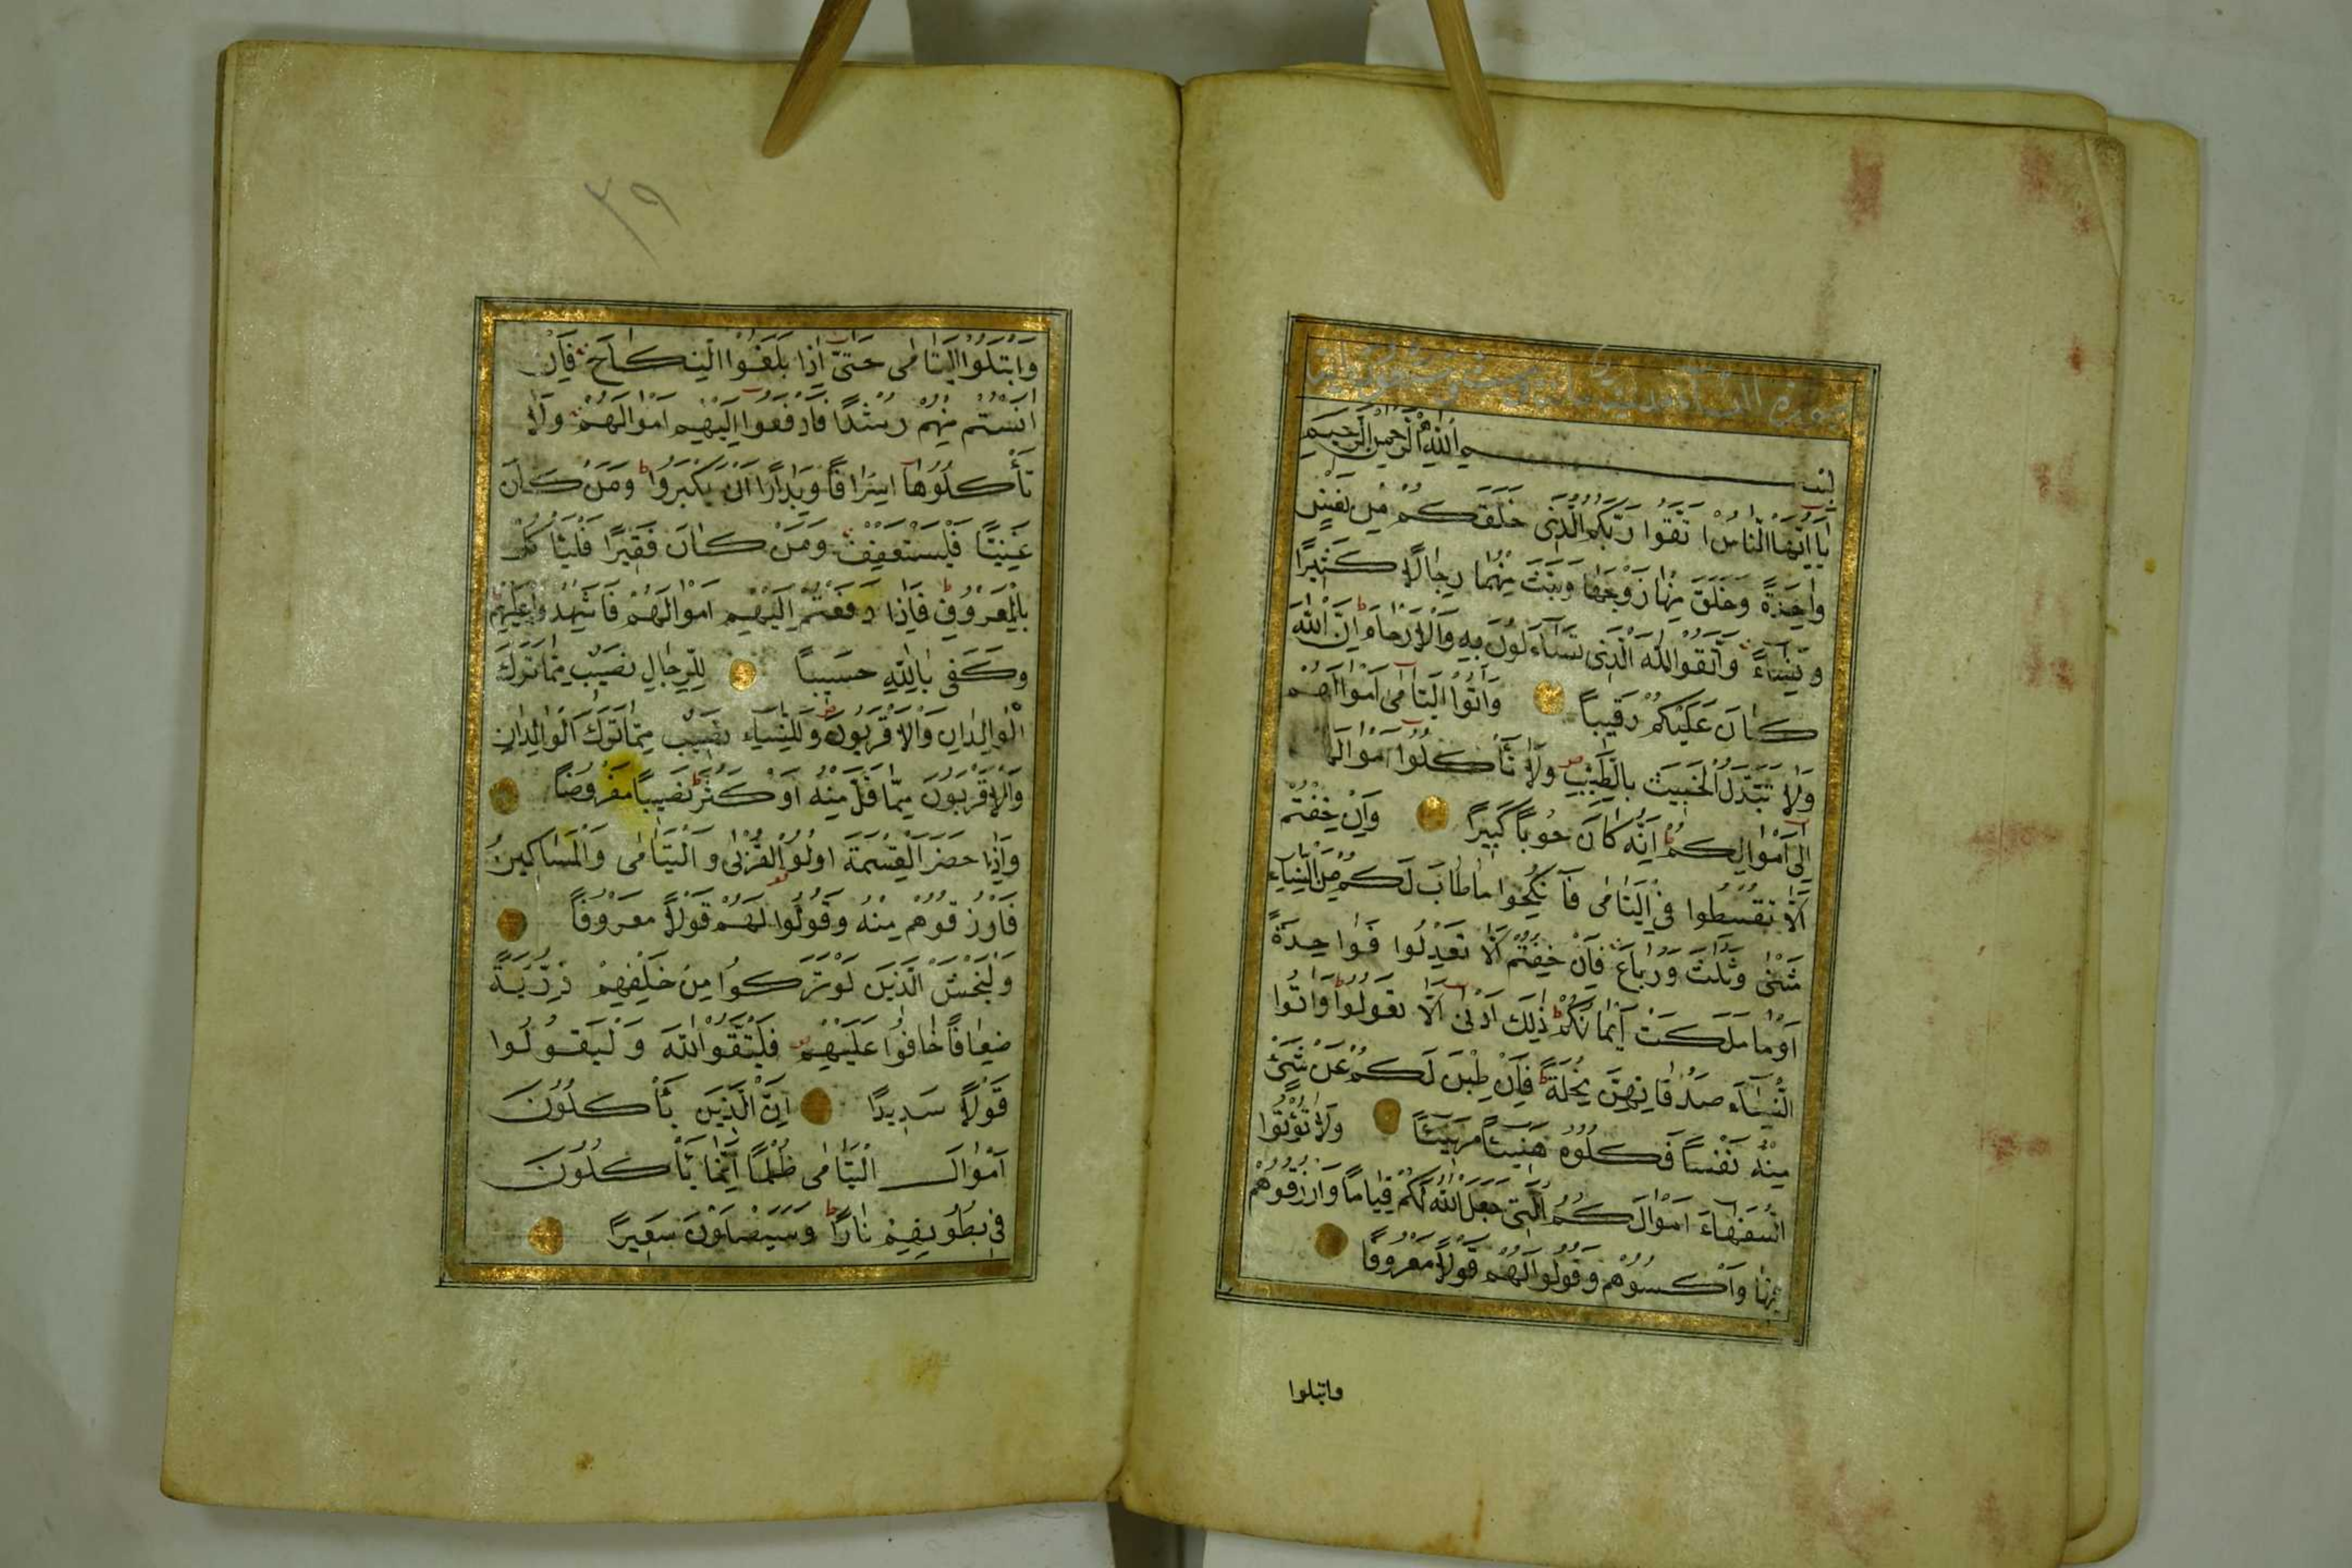 سورة النساء
بسم الله الرحمن الرحيم
يَا اَيُّهَا النَّاسُ اتَّقُوا رَبَّكُمُ الَّذِى خَلَقَكُمْ مِنْ نَفْسٍ
وَاحِدَةٍ وَخَلَقَ مِنْهَا زَوْجَهَا وَبَثَّ مِنْهُمَا رِجَالًا كَثِيرًا
وَنِسَاءً وَاتَّقُوا اللّٰهَ الَّذِى تَسَاءَلُونَ بِهِ وَالْاَرْحَامَ اِنَّ اللّٰهَ
كَانَ عَلَيْكُمْ رَقِيبًا وَاٰتُوا الْيَتَامٰى اَمْوَالَهُمْ
وَلَا تَتَبَدَّلُوا الْخَبِيثَ بِالطَّيِّبِ وَلَا تَأْكُلُوا اَمْوَالَهُمْ
اِلٰى اَمْوَالِكُمْ اِنَّهُ كَانَ حُوبًا كَبِيرًا وَاِنْ خِفْتُمْ
اَلَّا تُقْسِطُوا فِى الْيَتَامٰى فَانْكِحُوا مَا طَابَ لَكُمْ مِنَ النِّسَاءِ
مَثْنٰى وَثُلٰثَ وَرُبَاعَ فَاِنْ خِفْتُمْ اَلَّا تَعْدِلُوا فَوَاحِدَةً
اَوْ مَا مَلَكَتْ اَيْمَانُكُمْ ذٰلِكَ اَدْنٰى اَلَّا تَعُولُوا وَاٰتُوا
النِّسَاءَ صَدُقَاتِهِنَّ نِحْلَةً فَاِنْ طِبْنَ لَكُمْ عَنْ شَىْءٍ
مِنْهُ نَفْسًا فَكُلُوهُ هَنِيئًا مَرِيئًا وَلَا تُؤْتُوا
السُّفَهَاءَ اَمْوَالَكُمُ الَّتِى جَعَلَ اللّٰهُ لَكُمْ قِيَامًا وَارْزُقُوهُمْ
فِيهَا وَاكْسُوهُمْ وَقُولُوا لَهُمْ قَوْلًا مَعْرُوفًا
وابتلوا
٣٩
وَابْتَلُوا الْيَتَامٰى حَتّٰى اِذَا بَلَغُوا النِّكَاحَ فَاِنْ
اٰنَسْتُمْ مِنْهُمْ رُشْدًا فَادْفَعُوا اِلَيْهِمْ اَمْوَالَهُمْ وَلَا
تَأْكُلُوهَا اِسْرَافًا وَبِدَارًا اَنْ يَكْبَرُوا وَمَنْ كَانَ
غَنِيًّا فَلْيَسْتَعْفِفْ وَمَنْ كَانَ فَقِيرًا فَلْيَأْكُلْ
بِالْمَعْرُوفِ فَاِذَا دَفَعْتُمْ اِلَيْهِمْ اَمْوَالَهُمْ فَاَشْهِدُوا عَلَيْهِمْ
وَكَفٰى بِاللّٰهِ حَسِيبًا لِلرِّجَالِ نَصِيبٌ مِمَّا تَرَكَ
الْوَالِدَانِ وَالْاَقْرَبُونَ وَلِلنِّسَاءِ نَصِيبٌ مِمَّا تَرَكَ الْوَالِدَانِ
وَالْاَقْرَبُونَ مِمَّا قَلَّ مِنْهُ اَوْ كَثُرَ نَصِيبًا مَفْرُوضًا
وَاِذَا حَضَرَ الْقِسْمَةَ اُولُوا الْقُرْبٰى وَالْيَتَامٰى وَالْمَسَاكِينُ
فَارْزُقُوهُمْ مِنْهُ وَقُولُوا لَهُمْ قَوْلًا مَعْرُوفًا
وَلْيَخْشَ الَّذِينَ لَوْ تَرَكُوا مِنْ خَلْفِهِمْ ذُرِّيَّةً
ضِعَافًا خَافُوا عَلَيْهِمْ فَلْيَتَّقُوا اللّٰهَ وَلْيَقُولُوا
قَوْلًا سَدِيدًا اِنَّ الَّذِينَ يَأْكُلُونَ
اَمْوَالَ الْيَتَامٰى ظُلْمًا اِنَّمَا يَأْكُلُونَ
فِى بُطُونِهِمْ نَارًا وَسَيَصْلَوْنَ سَعِيرًا